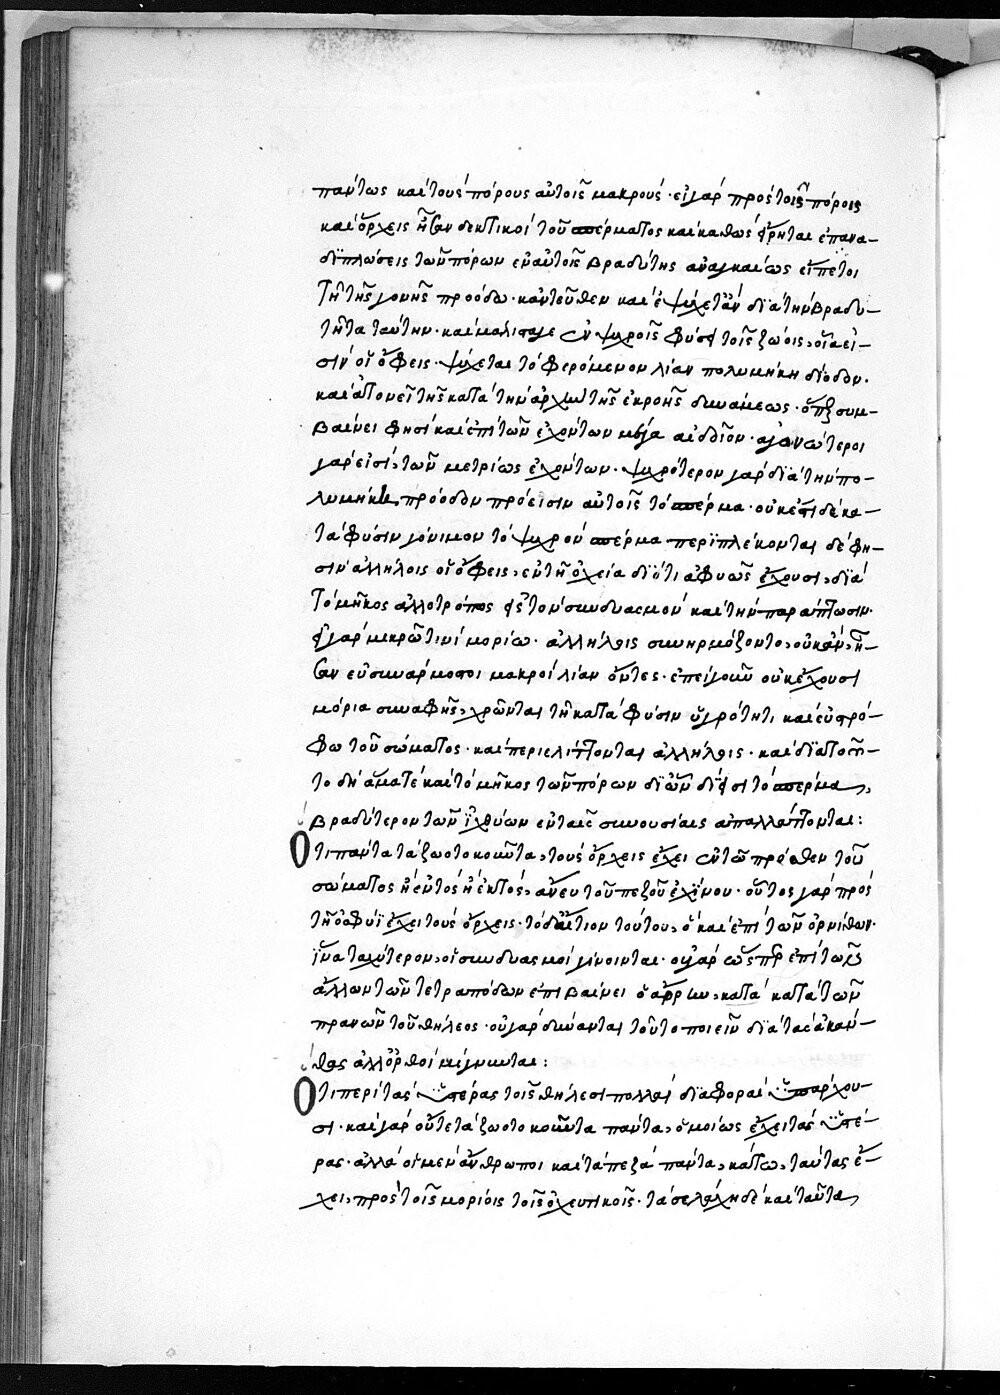 παντως καὶ τοὺς πόρους αὐτοῖς μακρούς· εἰ γὰρ πρὸς τοῖς πόροις
καὶ ὄρχεις ἦσαν δεκτικοὶ τοῦ σπέρματος καὶ καθὼς εἴρηται ἐπανα-
διπλώσεις τῶν πόρων ἐν αὐτοῖς βραδύτης ἀναγκαίως εἵπετο
τῇ τῆς γονῆς προόδω· κἀντεῦθεν καὶ ἐψύχετ' ἂν διὰ τὴν βραδυ-
τῆτα ταύτην· καὶ μάλιστά γε ἐν ψυχροῖς φύσει τοῖς ζώοις, οἷα εἰ-
σὶν οἱ ὄφεις· ψύχεται τὸ φερόμενον λίαν πολυμήκη δίοδον.
καὶ ἀτονεῖ τῆς κατὰ τὴν ἀρχὴν τῆς ἐκροῆς δυνάμεως· ὅπερ συμ-
βαίνει φησὶ καὶ ἐπὶ τῶν ἐχόντων μέγα αἰδοῖον· ἀγονώτεροι
γάρ εἰσι, τῶν μετρίως ἐχόντων· ψυχρότερον γὰρ διὰ τὴν πο-
λυμήκη πρόοδον πρόεισιν αὐτοῖς τὸ σπέρμα· οὐκ ἔστι δὲ κα-
τὰ φύσιν γόνιμον τὸ ψυχρὸν σπέρμα περιπλέκονται δέ φη-
σιν ἀλλήλοις οἱ ὄφεις, ἐν τῇ ὀχεία διότι ἀφυῶς ἔχουσι, διὰ
τὸ μῆκος ἀλλοτρόπως εἰς τὸν συνδυασμὸν καὶ τὴν παράπτωσιν·
εἰ γὰρ μικρῶ τινὶ μορίω· ἀλλήλοις συνηρμόζοντο, οὐκ ἂν ἦ-
σαν εὐσυνάρμοστοι μακροὶ λίαν ὄντες· ἐπεὶ γοῦν οὐκ ἔχουσι
μόρια συναφῆς, χρῶνται τῇ κατὰ φύσιν ὑγρότητι καὶ εὐστρό-
φω τοῦ σώματος· καὶ περιελίττονται ἀλλήλοις· καὶ διὰ τοῦ-
το δὴ ἅμα τὲ καὶ τὸ μῆκος τῶν πόρων δι ὧν δίεισι τὸ σπέρμα,
βραδύτερον τῶν ἰχθύων ἐν ταῖς συνουσίαις ἀπαλλάττονται:
Ὅτι πάντα τὰ ζωοτοκοῦντα, τοὺς ὄρχεις ἔχει ἐν τῶ πρόσθεν τοῦ
σώματος ἢ ἐντὸς ἢ ἐκτός, ἄνευ τοῦ πεζοῦ ἐχίνου· οὗτος γὰρ πρὸς
τῇ ὀσφύϊ ἔχει τοὺς ὄρχεις· τὸ δ' αἴτιον τούτου, ὃ καὶ ἐπὶ τῶν ὀρνίθων·
ἵνα ταχύτερον, οἱ συνδυασμοὶ γίνοιντο· οὐ γὰρ ὥσπερ ἐπὶ τῶν
ἄλλων τῶν τετραπόδων ἐπιβαίνει ὁ ἄρρην, κατὰ κατὰ τῶν
πρανῶν τοῦ θήλεος· οὐ γὰρ δύνανται τοῦτο ποιεῖν διὰ τὰς ἀκάν-
θας ἀλλ' ὀρθοὶ μίγνυνται:
Ὅτι περὶ τὰς ὑστέρας τοῖς θήλεσι πολλαὶ διαφοραὶ ὑπάρχου-
σι· καὶ γὰρ οὔτε τὰ ζωοτοκοῦντα πάντα, ὁμοίως ἔχει τὰς ὑστέ-
ρας· ἀλλὰ οἱ μὲν ἄνθρωποι καὶ τὰ πεζὰ πάντα, κάτω, ταύτας ἔ-
χει, πρὸς τοῖς μορίοις τοῖς ὀχευτικοῖς· τὰ σελάχη δὲ καὶ ταῦτα,